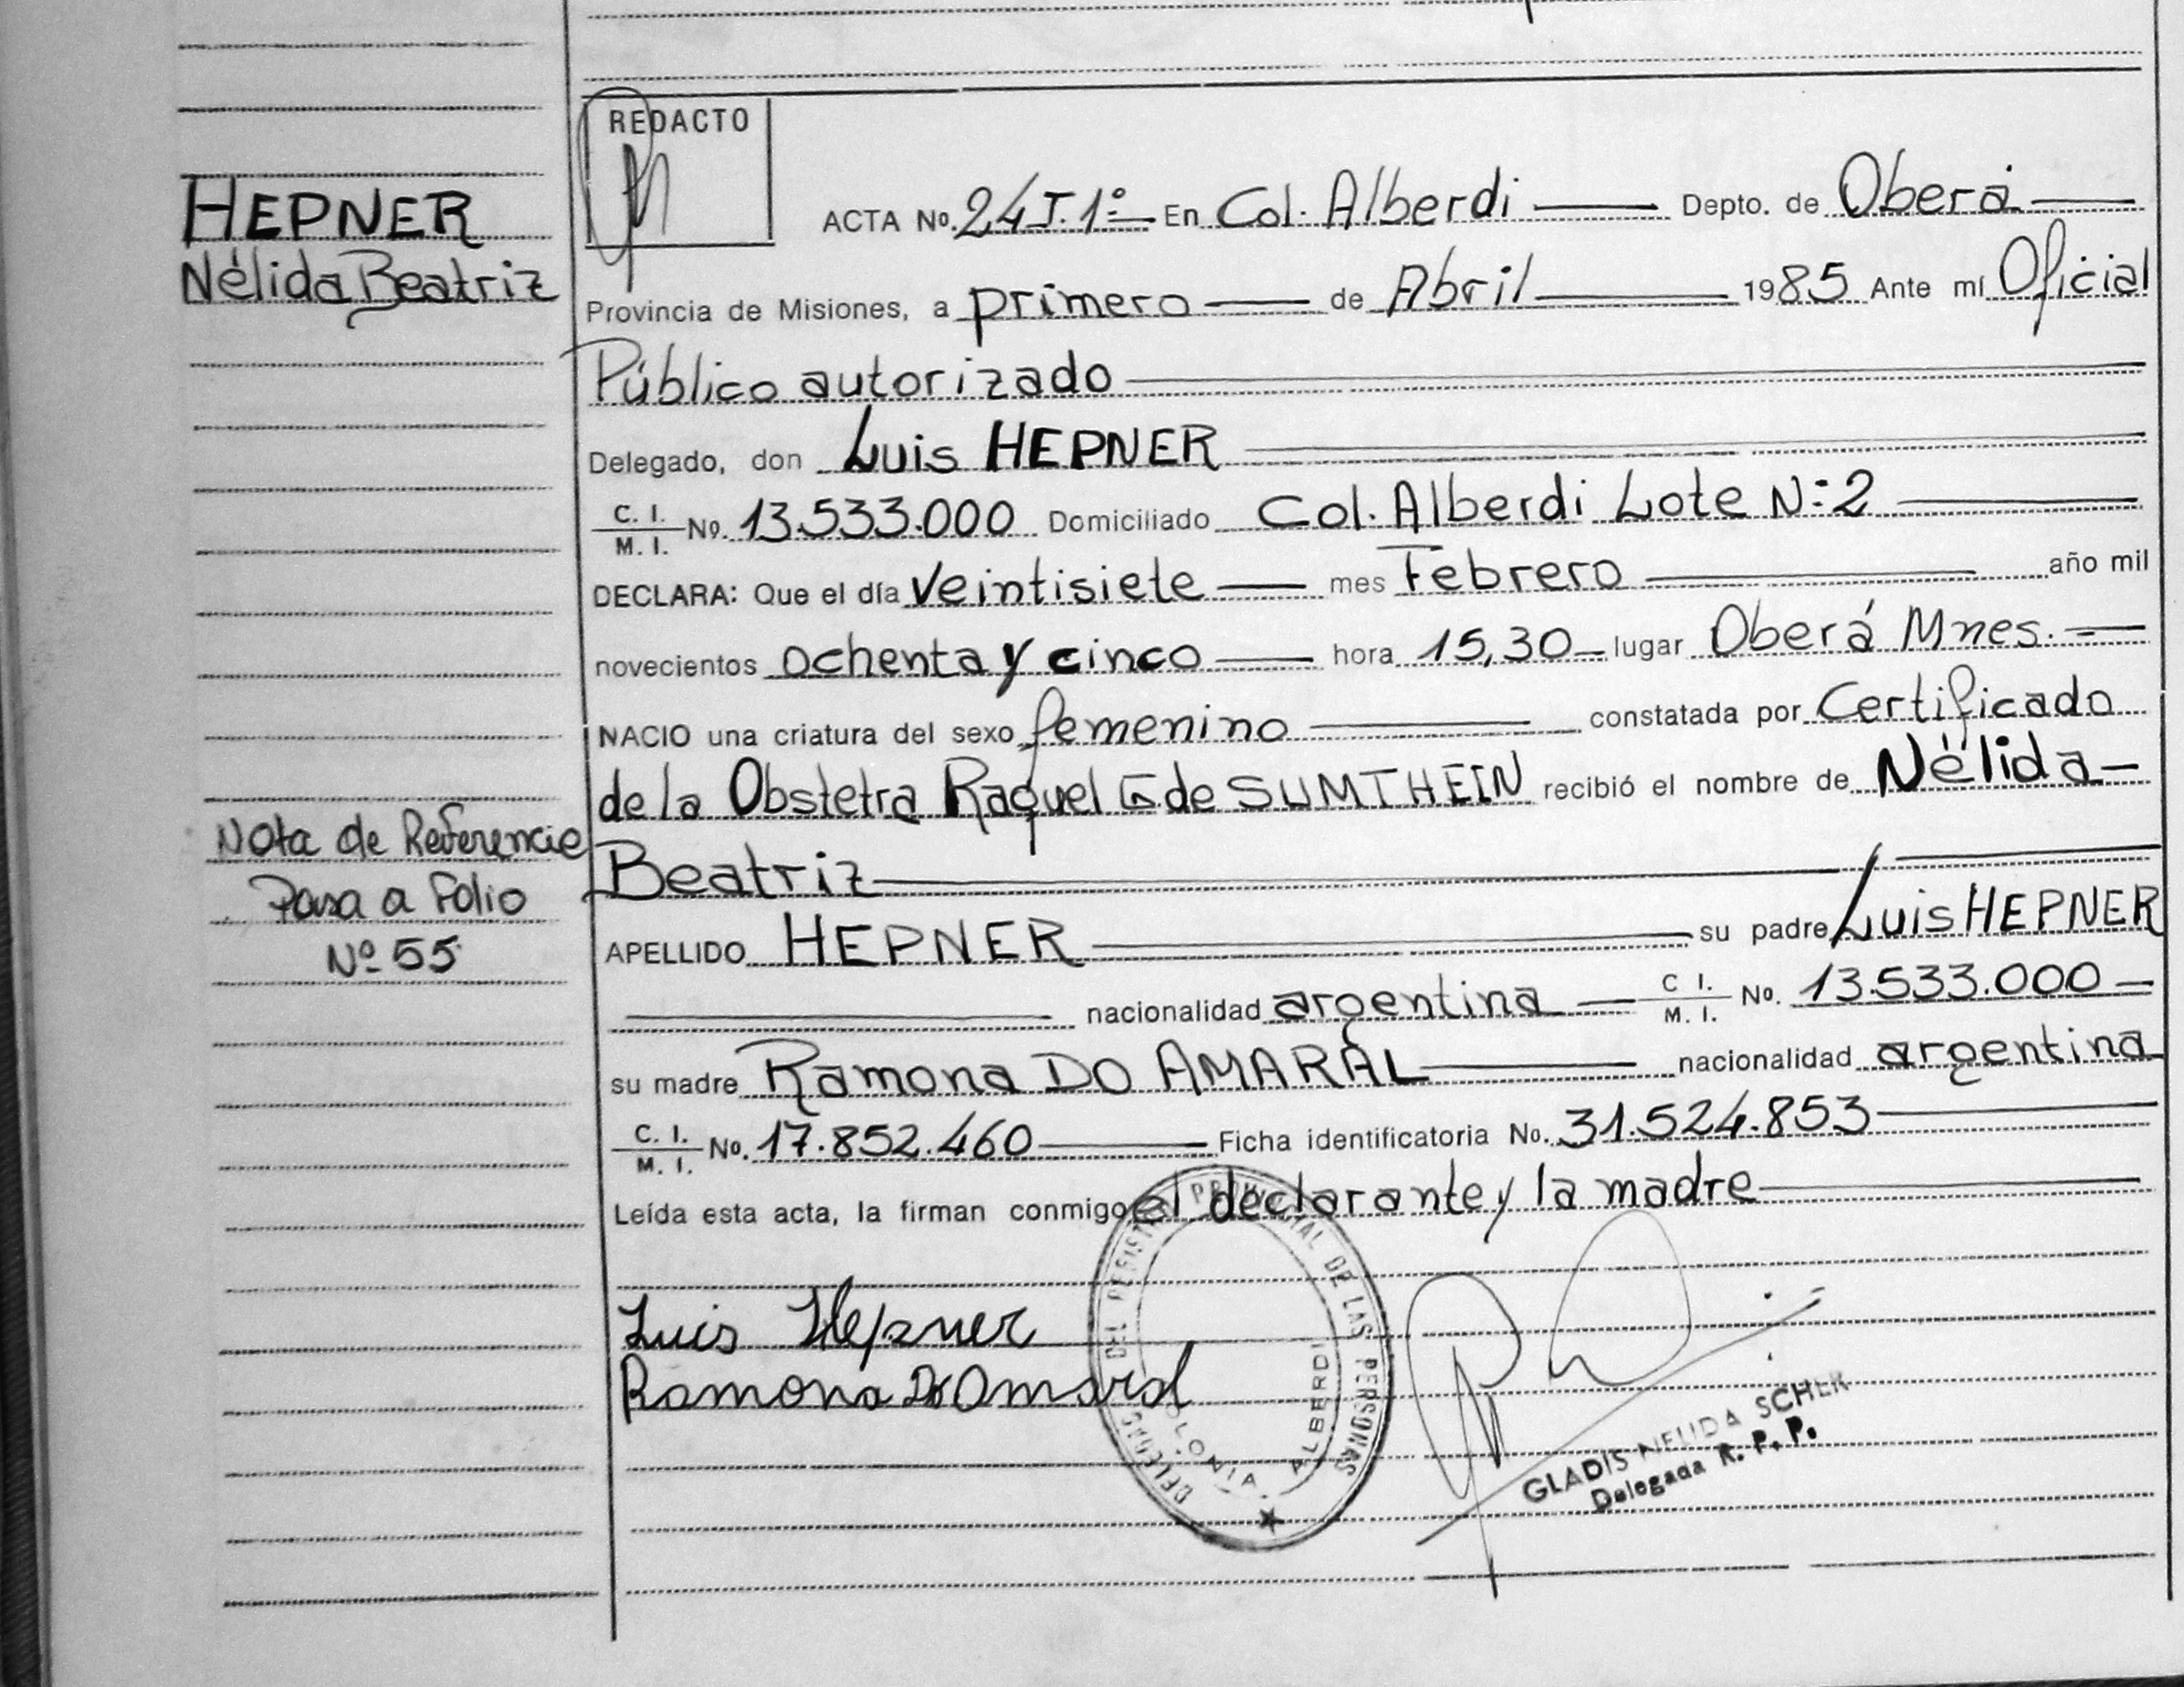 HEPNER
Nélida Beatriz
Nota de Referencia
Pasa a Folio
Nº 55
REDACTO
ACTA Nº. 24 T. 1º En Col. Alberdi Depto. de Oberá
Provincia de Misiones, a primero de Abril 1985 Ante mí Oficial
Público autorizado
Delegado, don Luis HEPNER
C. I. / M. I. Nº. 13.533.000 Domiciliado Col. Alberdi Lote Nº 2
DECLARA: Que el día veintisiete mes Febrero año mil
novecientos ochenta y cinco hora 15,30 lugar Oberá Mnes.
NACIO una criatura del sexo femenino constatada por Certificado
de la Obstetra Raquel G de SUMTHEIN recibió el nombre de Nélida
Beatriz
APELLIDO HEPNER su padre Luis HEPNER
nacionalidad argentina C I. / M. I. Nº. 13.533.000
su madre Ramona DO AMARAL nacionalidad argentina
C. I. / M. I. Nº. 17.852.460 Ficha identificatoria No. 31.524.853
Leída esta acta, la firman conmigo el declarante y la madre
Luis Hepner
Ramona Do Amaral
DEL REGISTRO PROVINCIAL DE LAS PERSONAS
COLONIA ALBERDI
GLADIS NELIDA SCHER
Delegada R. P. P.